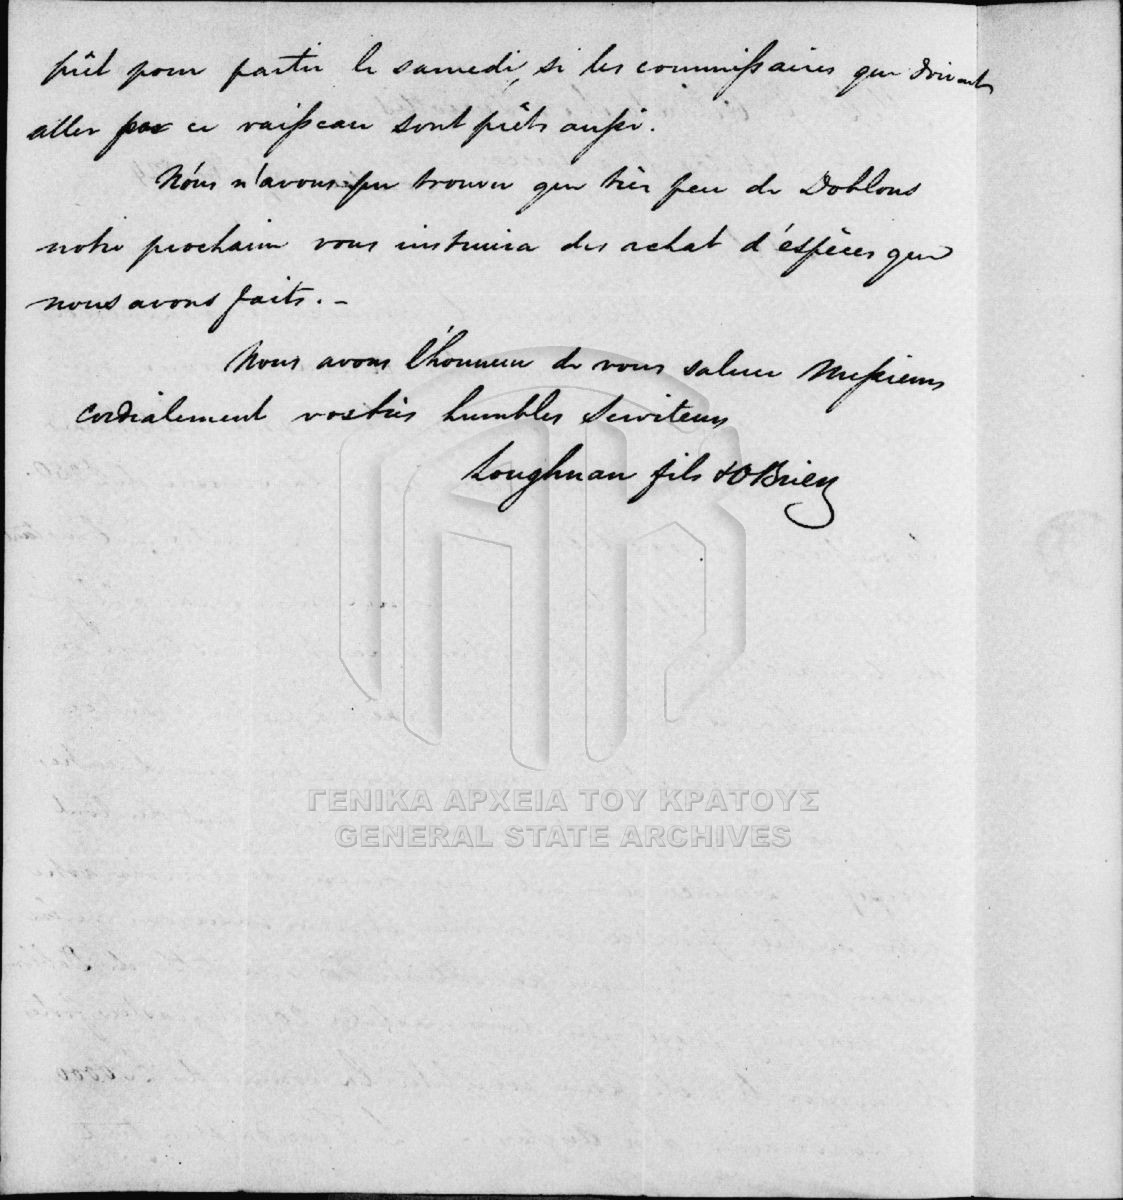 prêt pour partir le samedi, si les commissaires que doivent
aller par ce vaisseau sont prêts aussi.
Nous n'avons pu trouver que très peu de Doblons
notre prochain vous instruira des achat d'espèces que
nous avons faits. –
Nous avons l'honneur de vous saluer Messieurs
Cordialement vos très humbles Serviteurs
Loughnan fils & OBrien
ΓΕΝΙΚΑ ΑΡΧΕΙΑ ΤΟΥ ΚΡΑΤΟΥΣ
GENERAL STATE ARCHIVES